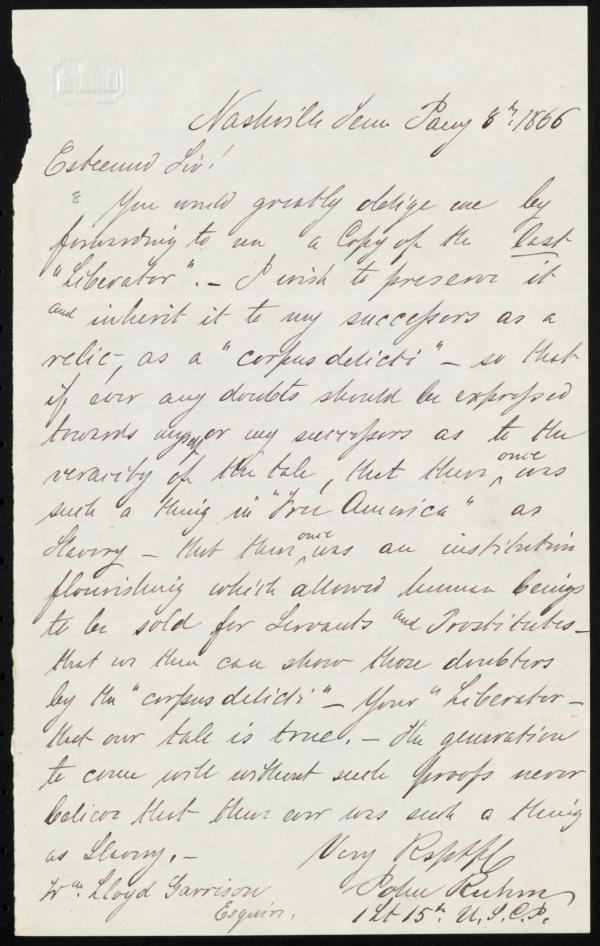 Nashville Tenn Jany 8th, 1866
Esteemed Sir!
You would greatly oblige me by
forwarding to me a Copy of the last
"Liberator". - I wish to preserve it
and inherit it to my successors as a
relic, as a "corpus delicti" - so that
if ever any doubts should be expressed
towards myself or my successors as to the
veracity of the tale, that there once was
such a thing in "Free America" as
Slavery - that there once was an institution
flourishing which allowed human beings
to be sold for Servants and Prostitutes -
that we then can show those doubters
by the "corpus delicti" - Your "Liberator -
that our tale is true. - The generation
to come will without such proofs never
believe that there ever was such a thing
as Slavery. -
Very Rsptfly
Wm Lloyd Garrison John Ruhm
Esquire. 1 Lt 15th U.S.C.I.